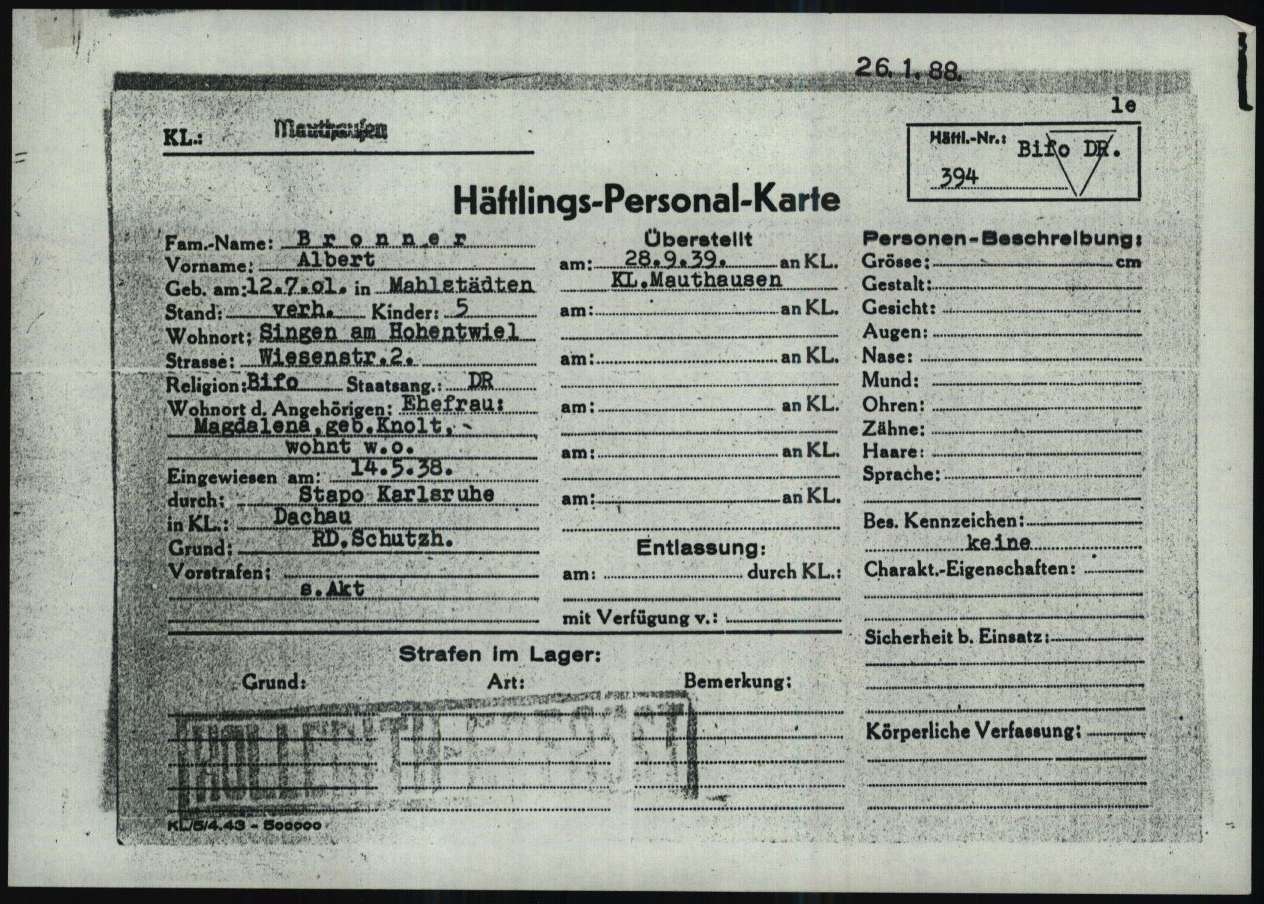 26.1.88.
le
KL.: Mauthausen
Häftl.-Nr.: Bifo DR.
394
Häftlings-Personal-Karte
Fam.-Name: Bronner
Vorname: Albert
Geb. am: 12.7.01. in Mahlstädten
Stand: verh. Kinder: 5
Wohnort: Singen am Hohentwiel
Strasse: Wiesenstr.2.
Religion: Bifo Staatsang.: DR
Wohnort d. Angehörigen: Ehefrau:
Magdalena,geb.Knolt,
wohnt w.o.
Eingewiesen am: 14.5.38.
durch: Stapo Karlsruhe
in KL.: Dachau
Grund: RD,Schutzh.
Vorstrafen:
s.Akt
Überstellt
am: 28.9.39. an KL.
KL.Mauthausen
am: an KL.
am: an KL.
am: an KL.
am: an KL.
am: an KL.
Entlassung:
am: durch KL.:
mit Verfügung v.:
Personen-Beschreibung:
Grösse: cm
Gestalt:
Gesicht:
Augen:
Nase:
Mund:
Ohren:
Zähne:
Haare:
Sprache:
Bes. Kennzeichen:
keine
Charakt.-Eigenschaften:
Sicherheit b. Einsatz:
Körperliche Verfassung:
Strafen im Lager:
Grund: Art: Bemerkung:
HOLLERITH ERFASST
KL/5/4.43 - 500000